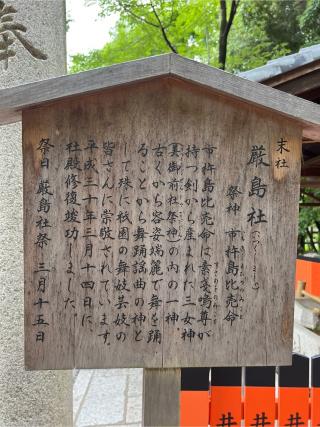 奉
末社
厳島社（いつくしましゃ）
祭神 市杵島比売命
市杵島比売命は素戔嗚尊が
持つ剣から産まれた三女神
（美御前社祭神）の内の一神。
古くから容姿端麗で舞を踊
ることから舞踊謡曲の神と
して殊に祇園の舞妓芸妓の
皆さんに崇敬されています。
平成三十年三月十四日に、
社殿修復竣功しました。
祭日 厳島社祭 三月十五日
井
井
井
井